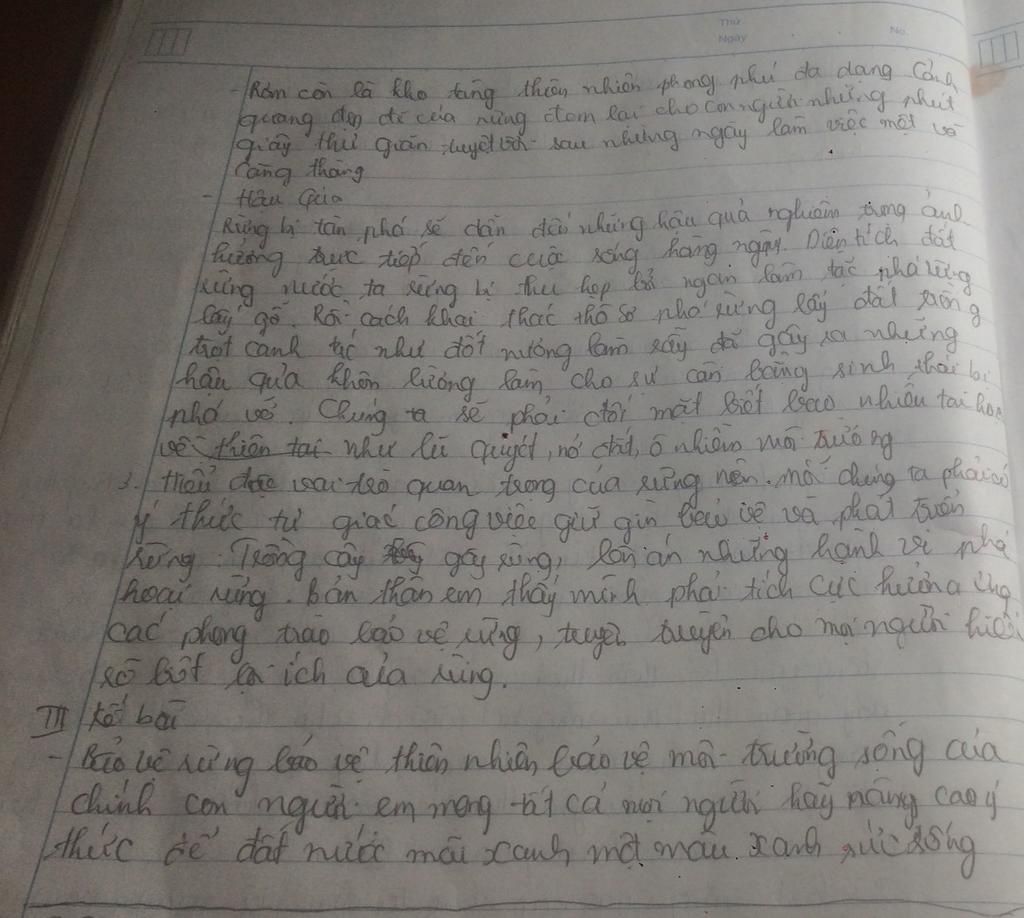 Thứ
Ngày
No.
- Rừng còn là kho tàng thiên nhiên phong phú đa dạng Cảnh
quang đẹp đẽ của rừng đem lại cho con người những phút
giây thư giãn tuyệt vời sau những ngày làm việc mệt và
căng thẳng
- Hậu Qủa
Rừng bị tàn phá sẽ dẫn đến những hậu quả nghiêm trọng ảnh
hưởng trực tiếp đến cuộc sống hàng ngày. Diện tích đất
rừng nước ta rừng bị thu hẹp bởi ngàn lâm tặc phá rừng
lấy gỗ. Rồi cách khai thác thô sơ phá rừng lấy đất trồng
trọt canh tác như đốt nương làm rẫy đã gây ra những
hậu qủa khôn lường làm cho sự cân bằng sinh thái bị
phá vỡ. Chúng ta sẽ phải đối mặt biết bao nhiêu tai họa
về thiên tai như lũ quyét, nở đất, ô nhiễm môi trường
3. thấu được vai trò quan trọng của rừng nên. mỗi chúng ta phải có
ý thức tự giác công việc giữ gìn bảo vệ và phát triển
rừng. Trồng cây gây rừng, lên án những hành vi phá
hoại rừng. bản thân em thấy mình phải tích cực hưởng ứng
các phong trào bảo vệ rừng, tuyên truyền cho mọi người hiểu
rõ biết lợi ích của rừng.
III Kết bài
- Bảo vệ rừng bảo vệ thiên nhiên bảo vệ môi trường sống của
chính con người em mong tất cả mọi người hãy nâng cao ý
thức để đất nước mãi xanh một màu xanh sức sống